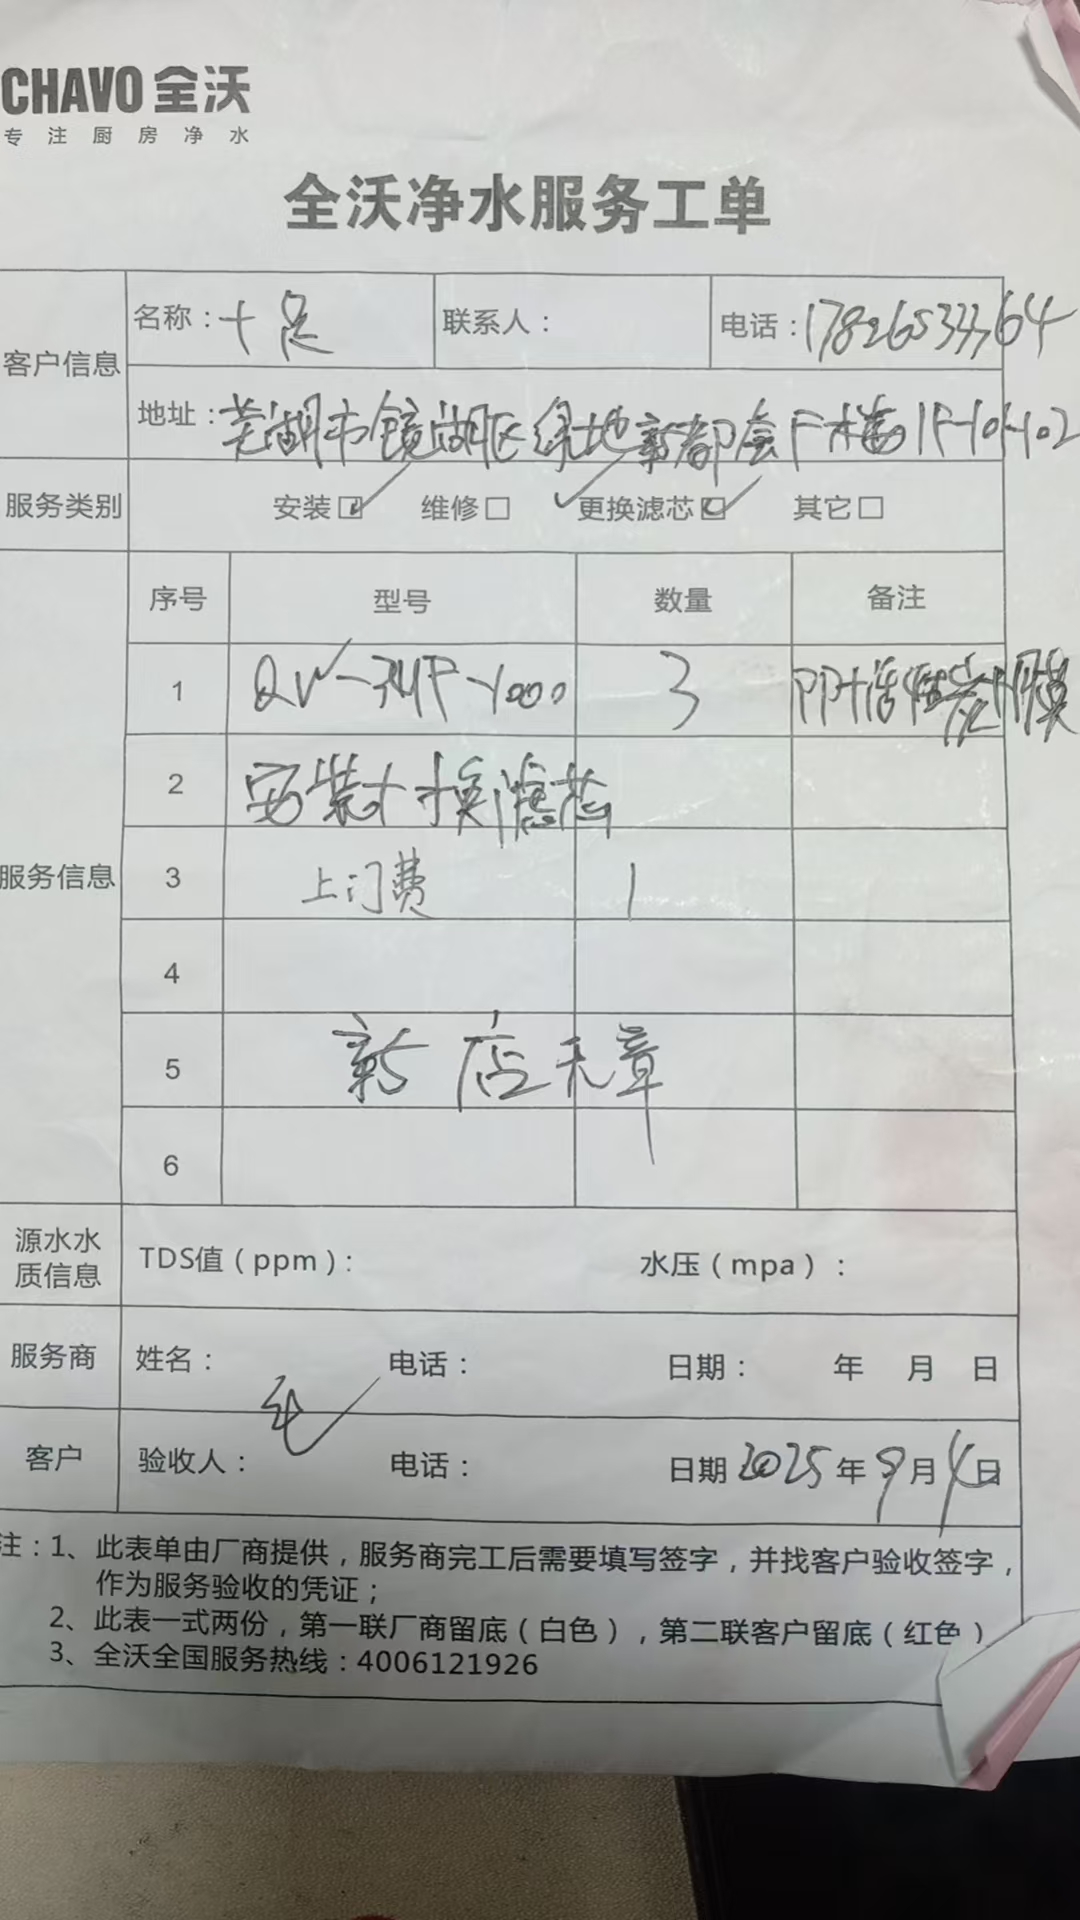 CHAVO 全沃
专注厨房净水
全沃净水服务工单
客户信息
名称：十足 联系人： 电话：17826533364
地址：芜湖市镜湖区绿地新都会F栋1F-101-102
服务类别 安装☑ 维修□ 更换滤芯☑ 其它□
服务信息
序号 型号 数量 备注
1 QW-3MF-1000 3 PP+活性炭+膜
2 安装+换滤芯
3 上门费 1
4
5 新店无章
6
源水水质信息 TDS值（ppm）： 水压（mpa）：
服务商 姓名： 电话： 日期： 年 月 日
客户 验收人： 电话： 日期 2025年9月4日
注：1、此表单由厂商提供，服务商完工后需要填写签字，并找客户验收签字，
作为服务验收的凭证；
2、此表一式两份，第一联厂商留底（白色），第二联客户留底（红色）
3、全沃全国服务热线：4006121926